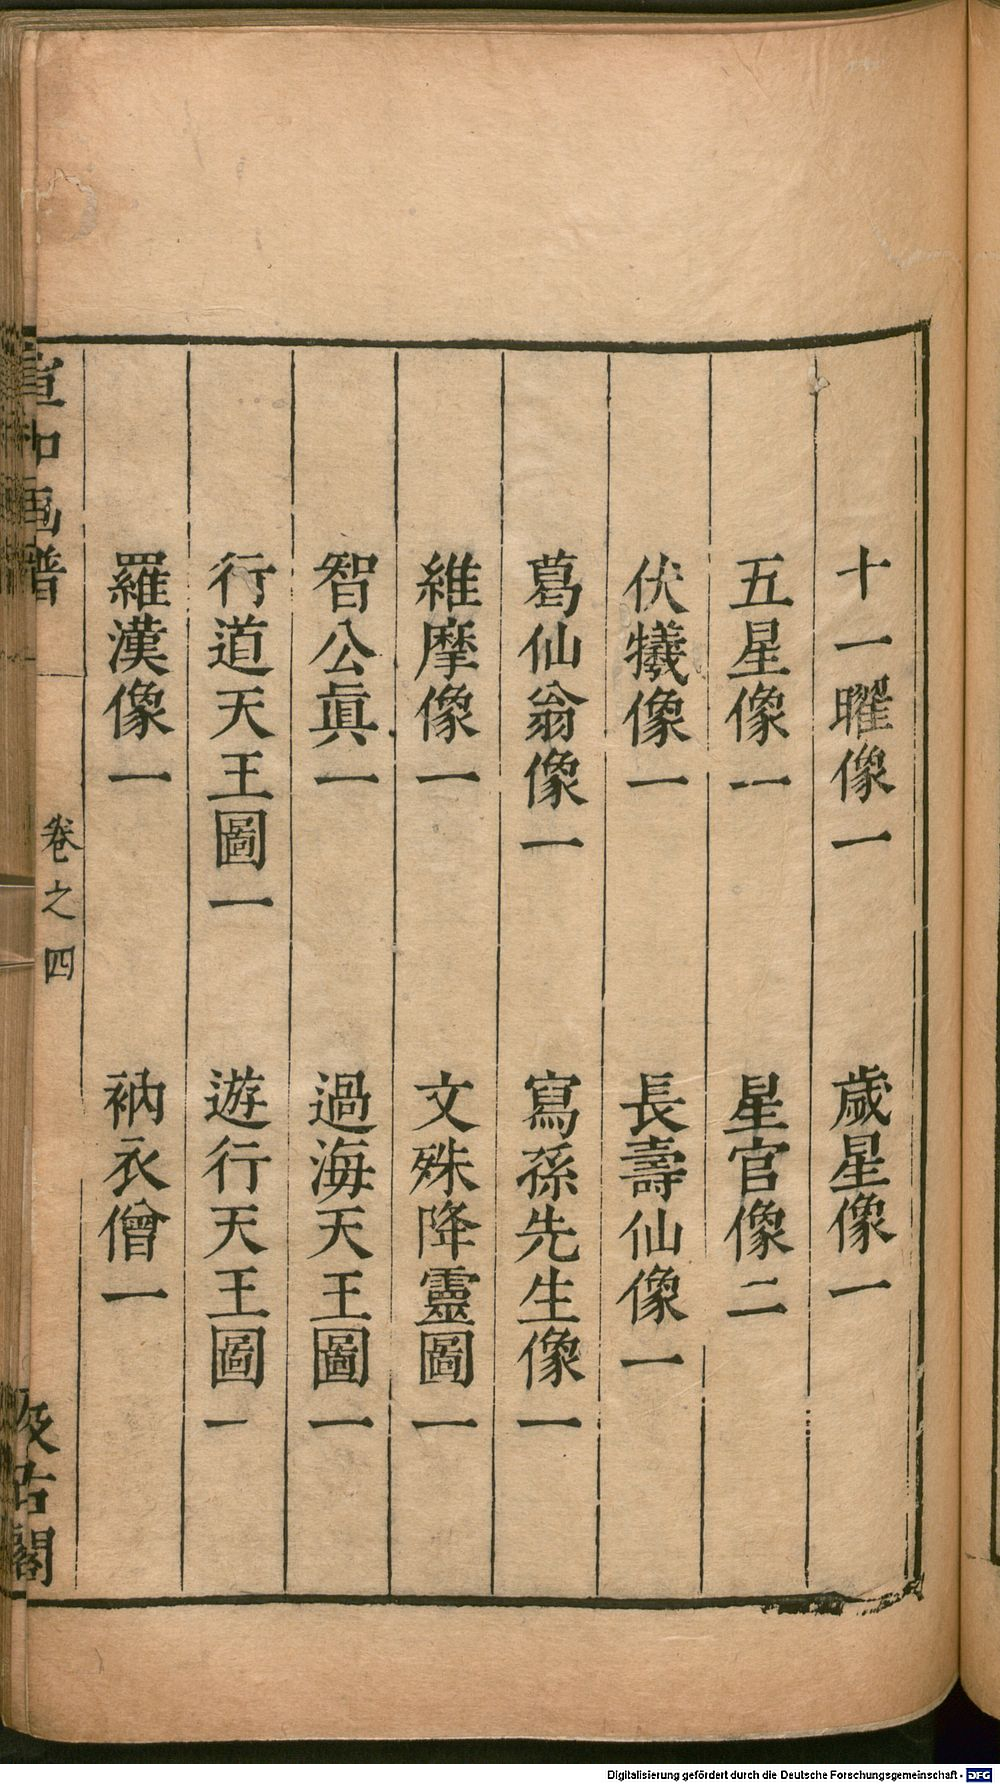 十一曜像一　歲星像一
五星像一　星官像二
伏犧像一　長壽仙像一
葛仙翁像一　寫孫先生像一
維摩像一　文殊降靈圖一
智公眞一　過海天王圖一
行道天王圖一　遊行天王圖一
羅漢像一　衲衣僧一
宣和画譜　卷之四　汲古閣
Digitalisierung gefördert durch die Deutsche Forschungsgemeinschaft - DFG